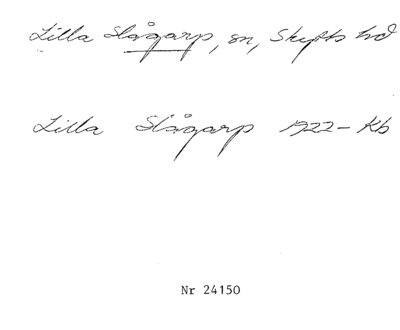 Lilla Slågarp, sn, Skytts hd
Lilla Slågarp 1922- Kb
Nr 24150